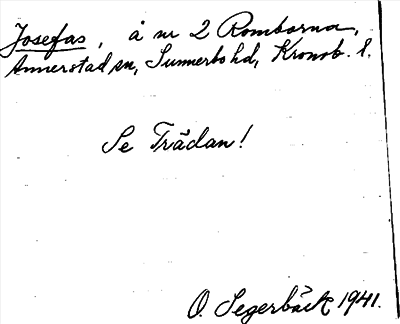 Josefas, å nr 2 Romborna,
Annerstad sn, Sunnerbo hd, Kronob. l.
Se Trädan!
O. Segerbäck 1941.